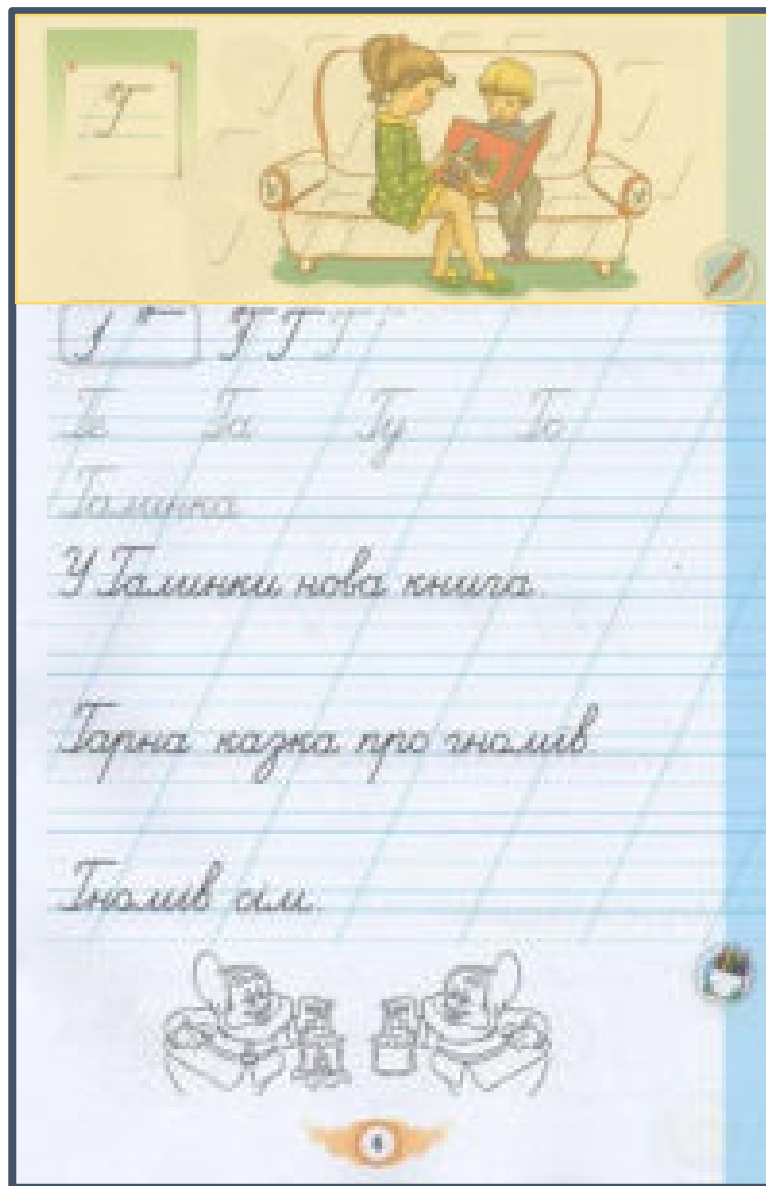 Г
Г Г Г
Ге Га Гу Го
Галинка
У Галинки нова книга.
Гарна казка про гномів.
Гномів сім.
6